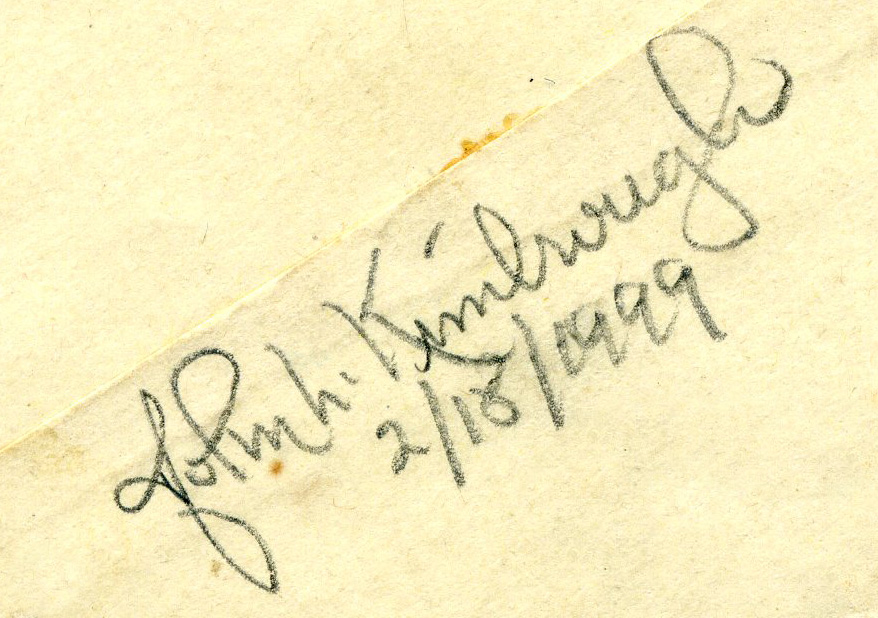 John h. Kimbrough
2/18/1999